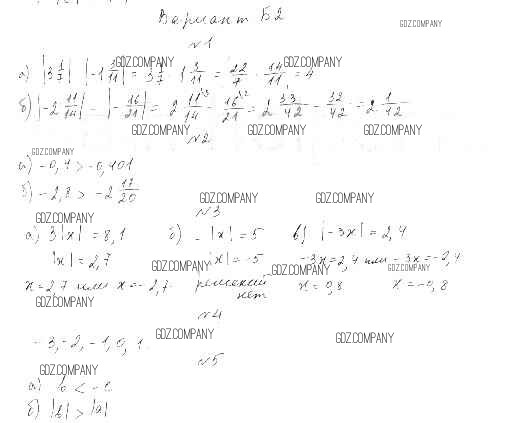 Вариант Б2
GDZ.COMPANY
№1
GDZ.COMPANY GDZ.COMPANY
а) |3 1/7| · |-1 3/11| = 3 1/7 · 1 3/11 = 22/7 · 14/11 = 4
б) |-2 11/14| - |-16/21| = 2 11/14 - 16/21 = 2 33/42 - 32/42 = 2 1/42
GDZ.COMPANY GDZ.COMPANY GDZ.COMPANY
№2
GDZ.COMPANY
а) -0,4 > -0,401
б) -2,8 > -2 17/20
GDZ.COMPANY GDZ.COMPANY
№3
GDZ.COMPANY
а) 3|x| = 8,1 б) -|x| = 5 в) |-3x| = 2,4
|x| = 2,7 |x| = -5 -3x = 2,4 или -3x = -2,4
GDZ.COMPANY GDZ.COMPANY GDZ.COMPANY
x = 2,7 или x = -2,7. решений нет x = 0,8 x = -0,8
GDZ.COMPANY
№4
GDZ.COMPANY GDZ.COMPANY
-3, -2, -1, 0, 1.
№5
GDZ.COMPANY
а)
б) |b| > |a|
GDZ.COMPANY